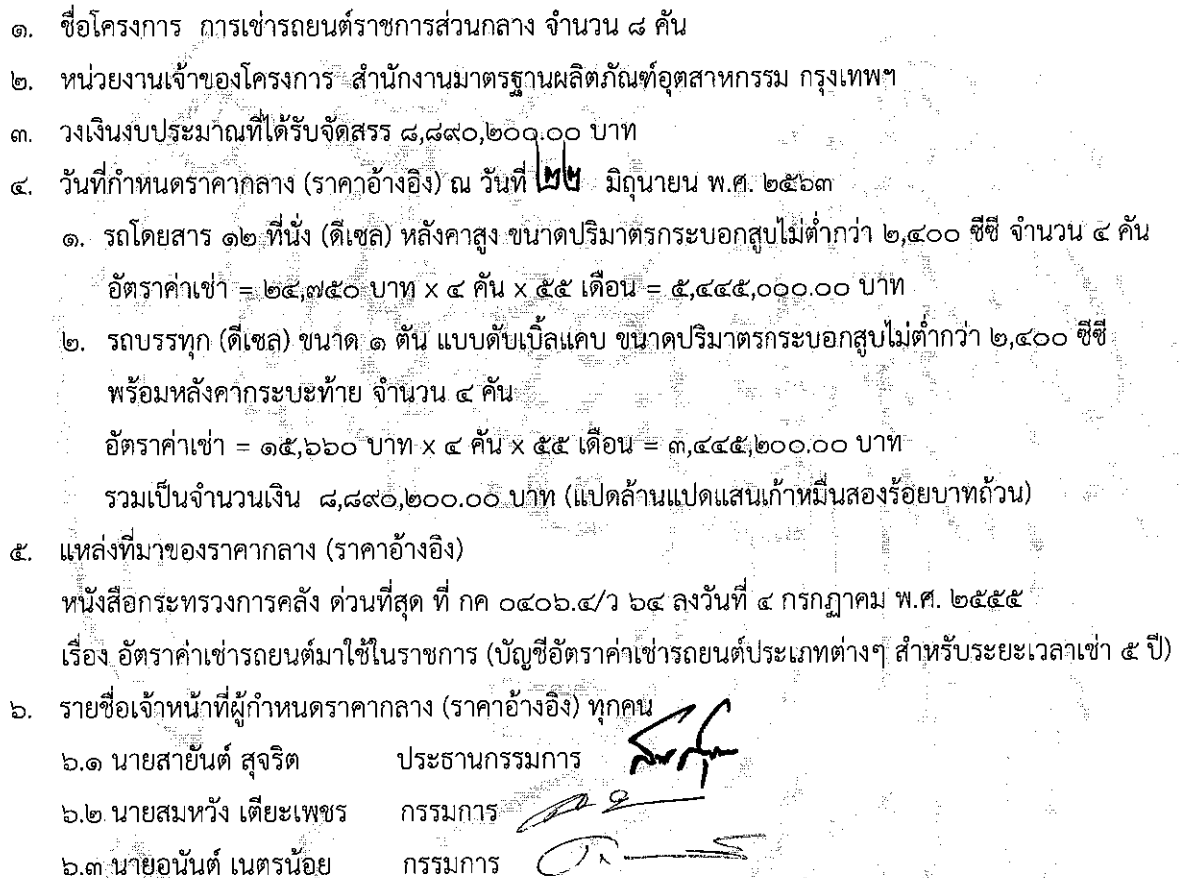 ๑. ชื่อโครงการ การเช่ารถยนต์ราชการส่วนกลาง จำนวน ๘ คัน
๒. หน่วยงานเจ้าของโครงการ สำนักงานมาตรฐานผลิตภัณฑ์อุตสาหกรรม กรุงเทพฯ
๓. วงเงินงบประมาณที่ได้รับจัดสรร ๘,๘๙๐,๒๐๐.๐๐ บาท
๔. วันที่กำหนดราคากลาง (ราคาอ้างอิง) ณ วันที่ ๒๒ มิถุนายน พ.ศ. ๒๕๖๓
๑. รถโดยสาร ๑๒ ที่นั่ง (ดีเซล) หลังคาสูง ขนาดปริมาตรกระบอกสูบไม่ต่ำกว่า ๒,๔๐๐ ซีซี จำนวน ๔ คัน
อัตราค่าเช่า = ๒๔,๗๕๐ บาท x ๔ คัน x ๕๕ เดือน = ๕,๔๔๕,๐๐๐.๐๐ บาท
๒. รถบรรทุก (ดีเซล) ขนาด ๑ ตัน แบบดับเบิ้ลแคบ ขนาดปริมาตรกระบอกสูบไม่ต่ำกว่า ๒,๔๐๐ ซีซี
พร้อมหลังคากระบะท้าย จำนวน ๔ คัน
อัตราค่าเช่า = ๑๕,๖๖๐ บาท x ๔ คัน x ๕๕ เดือน = ๓,๔๔๕,๒๐๐.๐๐ บาท
รวมเป็นจำนวนเงิน ๘,๘๙๐,๒๐๐.๐๐ บาท (แปดล้านแปดแสนเก้าหมื่นสองร้อยบาทถ้วน)
๕. แหล่งที่มาของราคากลาง (ราคาอ้างอิง)
หนังสือกระทรวงการคลัง ด่วนที่สุด ที่ กค ๐๔๐๖.๔/ว ๖๔ ลงวันที่ ๔ กรกฎาคม พ.ศ. ๒๕๕๕
เรื่อง อัตราค่าเช่ารถยนต์มาใช้ในราชการ (บัญชีอัตราค่าเช่ารถยนต์ประเภทต่างๆ สำหรับระยะเวลาเช่า ๕ ปี)
๖. รายชื่อเจ้าหน้าที่ผู้กำหนดราคากลาง (ราคาอ้างอิง) ทุกคน
๖.๑ นายสายันต์ สุจริต ประธานกรรมการ
๖.๒ นายสมหวัง เตียะเพชร กรรมการ
๖.๓ นายอนันต์ เนตรน้อย กรรมการ